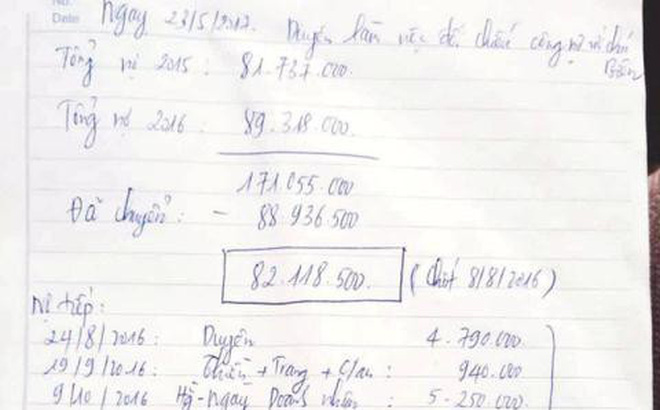 No.
Date
Ngày 23/5/2017. Duyên làm việc đối chiếu công nợ với chú
Tổng nợ 2015 : 81.737.000.
Tổng nợ 2016 : 89.318.000.
171.055.000
Đã chuyển : - 88 936.500
82.118.500. (Chốt 8/8/2016)
Nợ tiếp :
24/8/2016 : Duyên 4.790.000
19/9/2016 : + Trang + : 940.000
9/10/2016 - Ngày Doanh nhân : 5.250.000